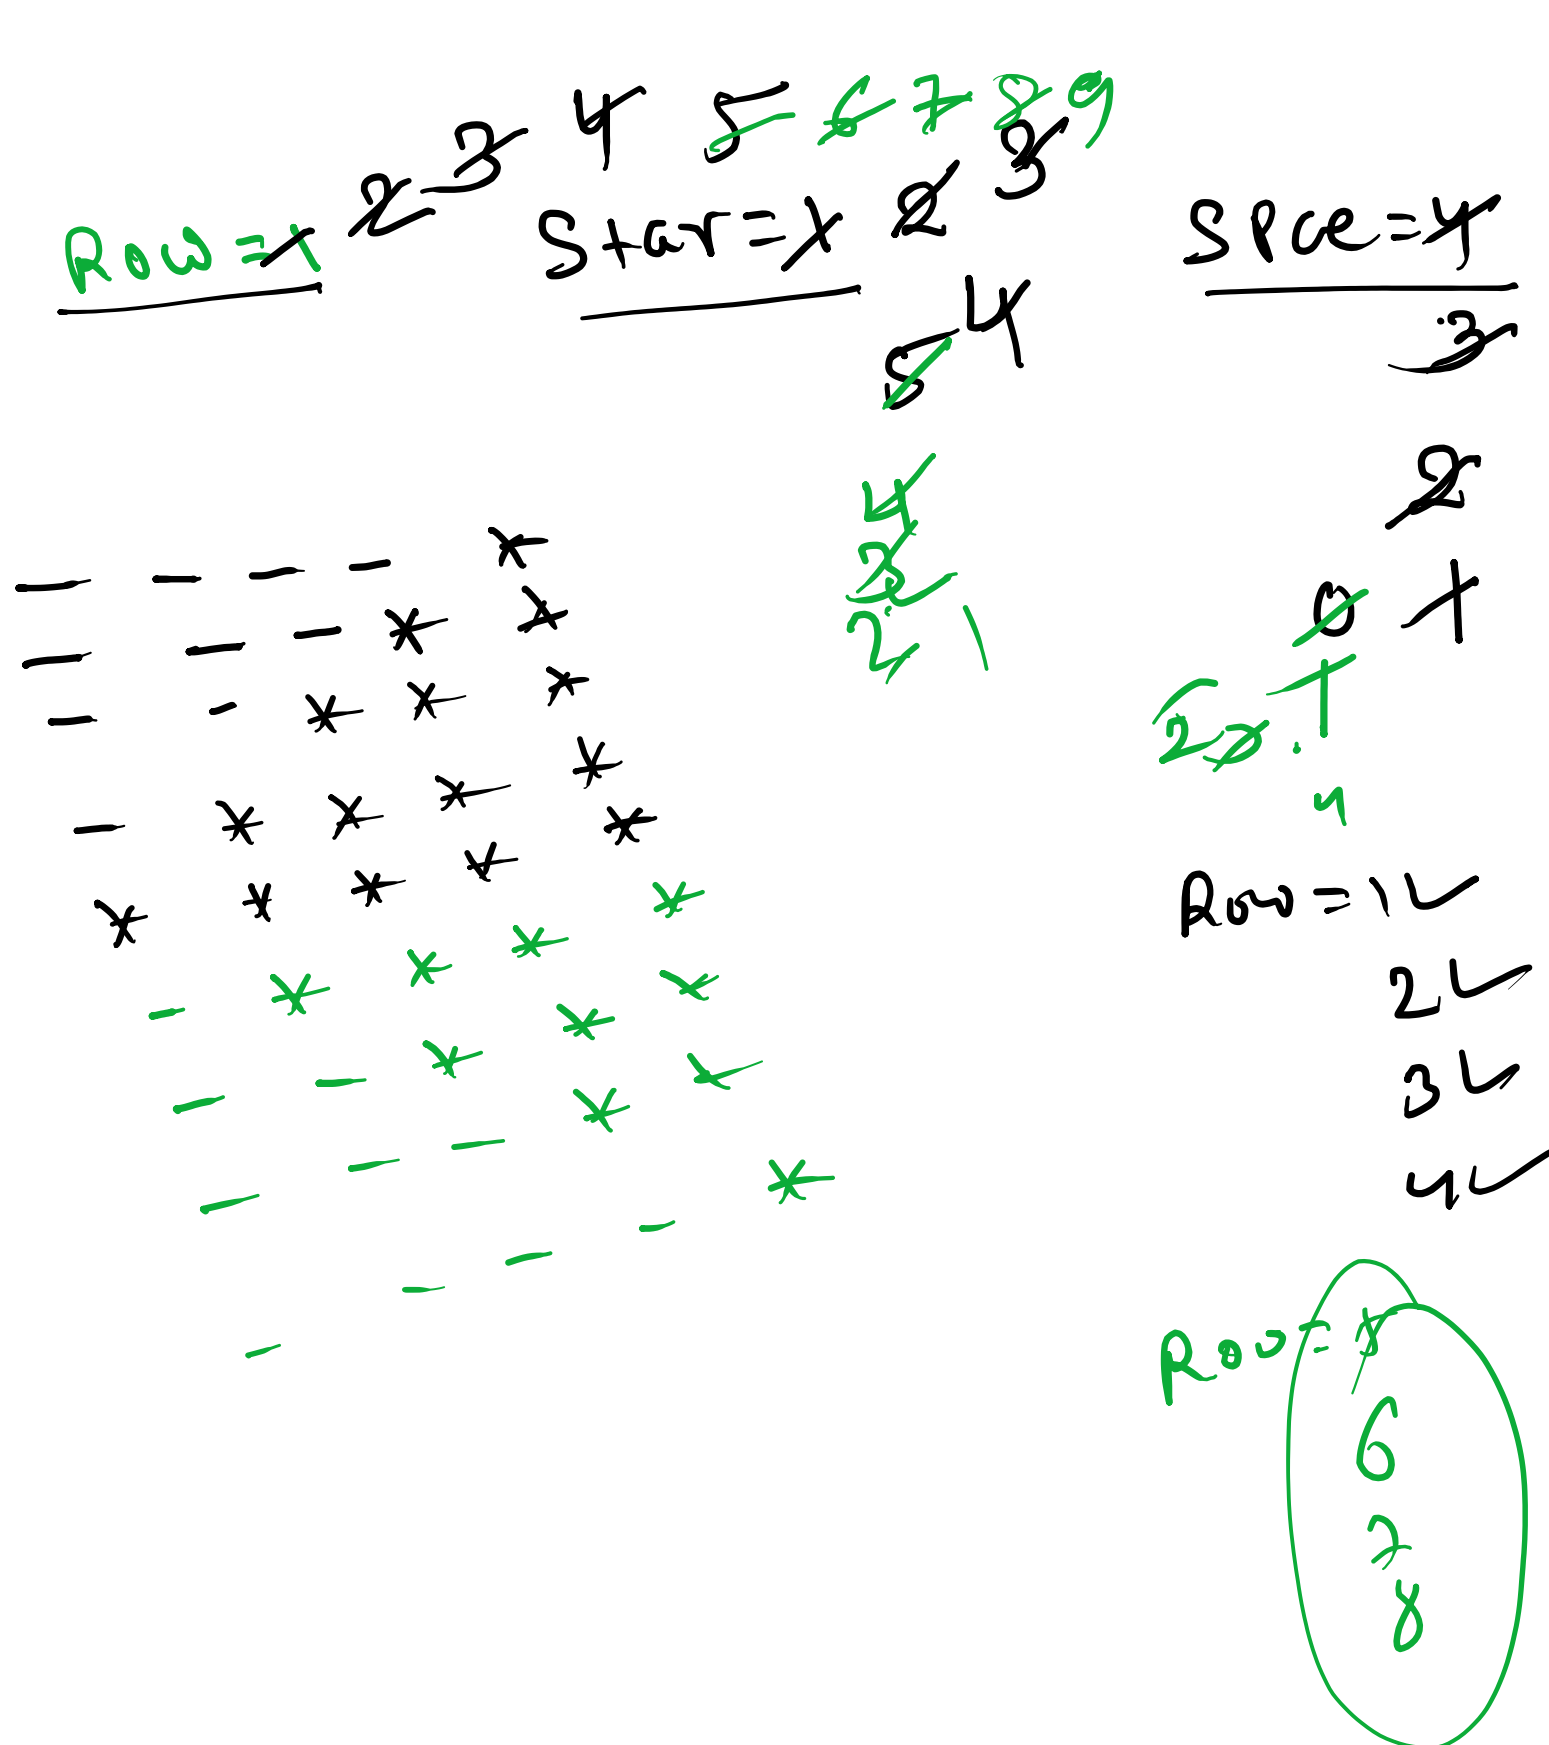 Row = 1 2 3 4 5 6 7 8 9
Star = 1 2 3
4
5
4
3
2 1
Spce = 4
3
2
1
0
1
2
4
_ _ _ _ *
_ _ _ * *
_ _ * * *
_ * * * *
* * * * *
_ * * * *
_ _ * * *
_ _ _ * *
_ _ _ _ *
Row = 1 ✓
2 ✓
3 ✓
4 ✓
Row = 5
6
7
8